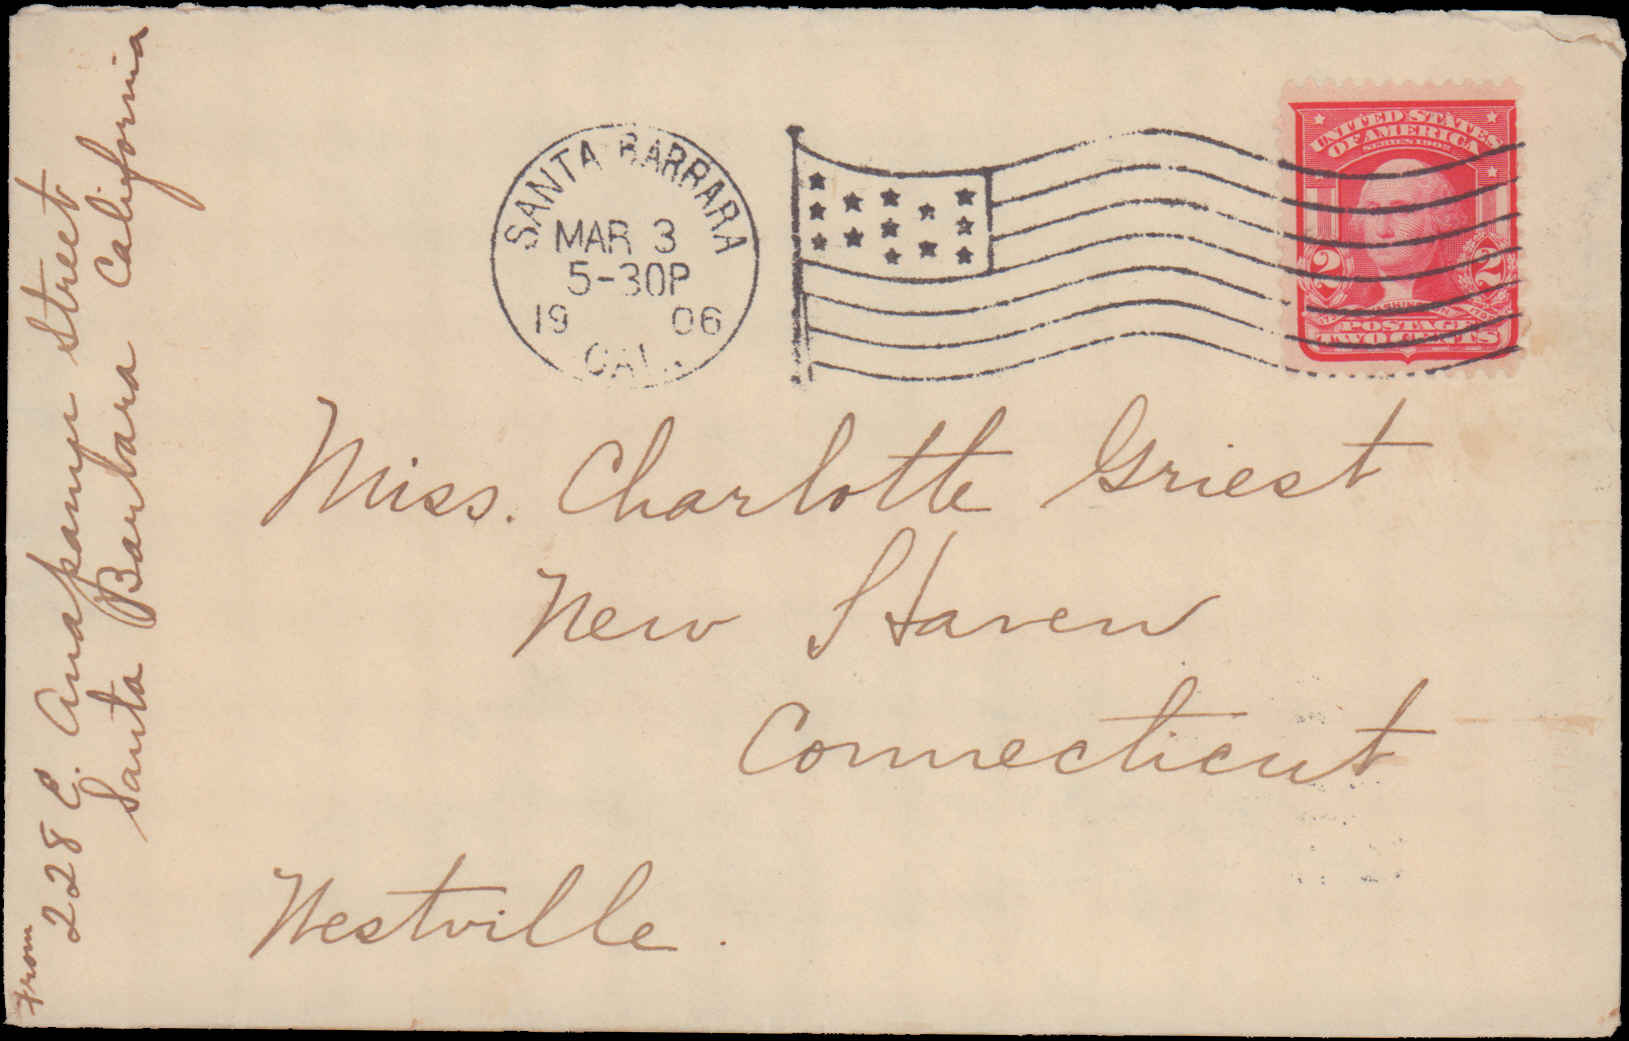 SANTA BARBARA
MAR 3
5-30P
19 06
CAL.
UNITED STATES
OF AMERICA
SERIES 1902
2 2
POSTAGE
TWO CENTS
Miss. Charlotte Griest
New Haven
Connecticut
Westville.
From
228 E. Anapamu Street
Santa Barbara California